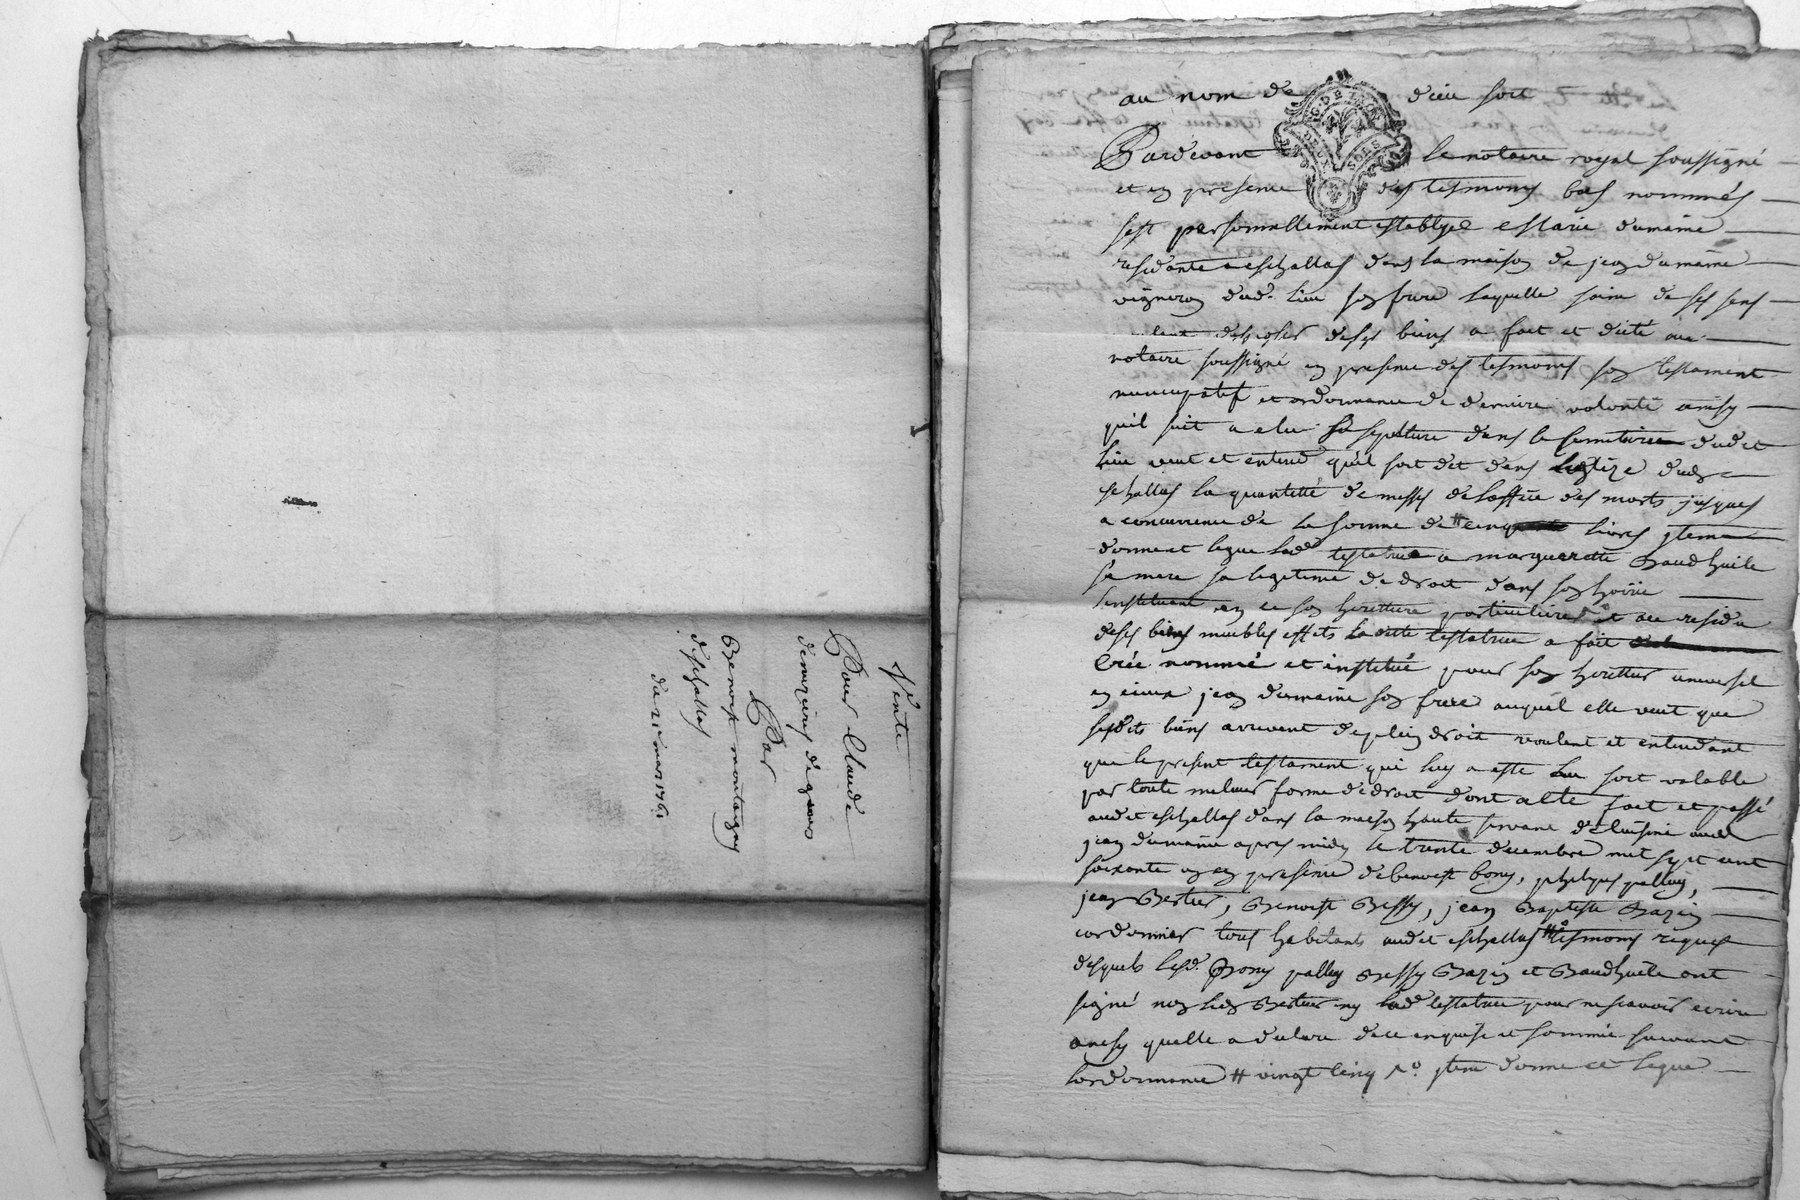 Vente
Pour Claude
demezieux de givors
Par
Benoist montagny
deschallas
du 21e mars 1761
au nom de dieu soit
G. DE LYON
DEUX SOLS
Pardevant le notaire royal soussigné
et en presence des tesmoins bas nommés
sest personnellement establye estarie dumaine
residante a eschallas dans la maison de jean dumaine
vigneron dud. lieu son frere laquelle saine de ses sens
disposer de ses biens a fait et dicté au
notaire soussigné en presence des tesmoins son testament
nuncupatif et ordonnance de derniere volonté ainsy
quil suit a elu sa sepulture dans le semetiere dudit
lieu veut et entend quil soit dit dans leglize dud.
eschallas la quantitté de messes de loffice des morts jusques
a concurrence de la somme de # cinq livres jtem
donne et legue lad. testatrice a marguerette Baudhuile
sa mere sa legitime de droit dans son hoirie
linstituant en ce son heritiere particuliere et au residu
de ses biens meubles effets laditte testatrice a fait
créé nommé et institué pour son heritier universel
jean dumaine son frere auquel elle veut que
sesdits biens arrivent de plein droit voulant et entendant
que le present testament qui luy a esté lu soit valable
par toute meilieur forme de droit dont acte fait et passé
audit eschallas dans la maison haute servant de cuisine dud.
jean dumaine apres midy le trente decembre mil sept cent
soixante un en presence de benoist bony, philipes palluy,
jean Bertier, Benoist Bessy, jean Baptiste Bazin
cordonnier tous habitants audit eschallas tesmoins requis
desquels lesd. Bony palluy Bessy Bazin et Baudhuile ont
signé non led. Bertier ny lad. testatrice pour ne scavoir ecrire
ainsy quelle a declaré de ce enquise et sommée suivant
lordonnance # vingt cinq jtem donne et legue